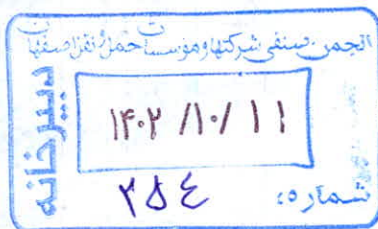 انجمن صنفی شرکتها و موسسات حمل و نقل اصفهان
دبیرخانه
۱۴۰۲/۱۰/۱۱
شماره: ۳۵۴